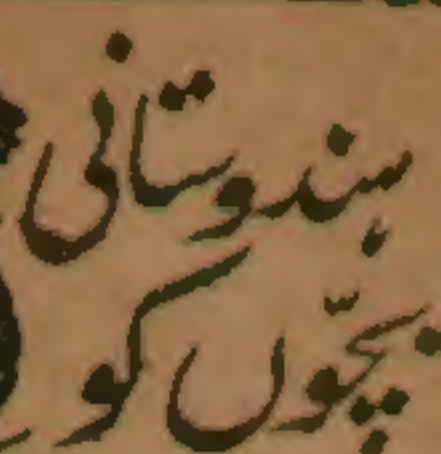 ہندوستانی
بچّوں کو